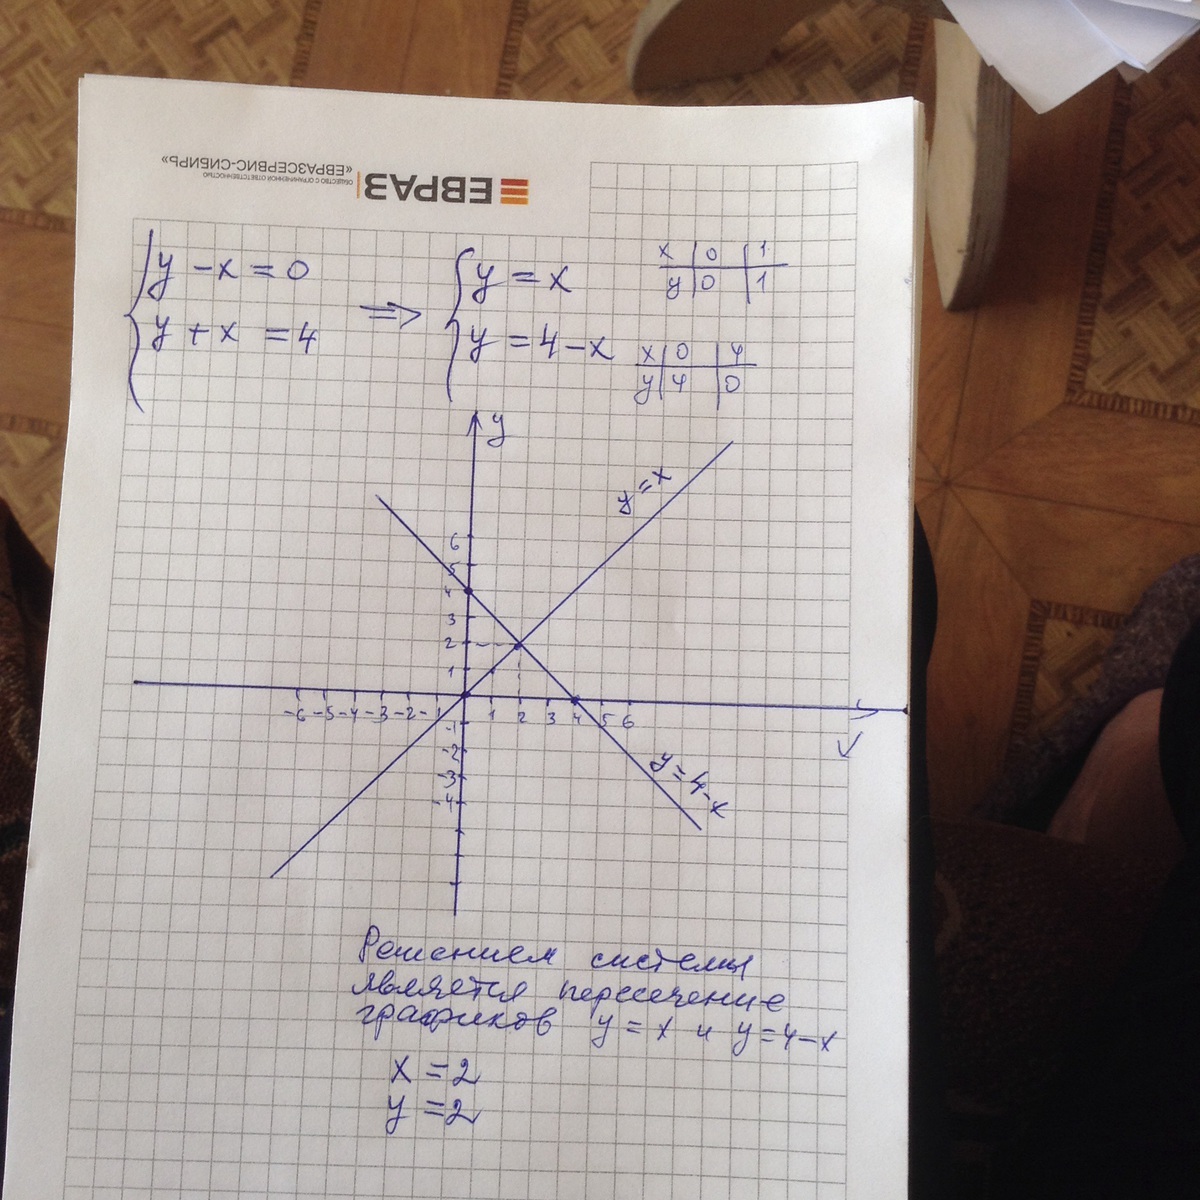 ЕВРАЗ
ОБЩЕСТВО С ОГРАНИЧЕННОЙ ОТВЕТСТВЕННОСТЬЮ
«ЕВРАЗСЕРВИС-СИБИРЬ»
y - x = 0
y + x = 4
=>
y = x
y = 4 - x
x 0 1
y 0 1
x 0 4
y 4 0
y
y = x
6
5
4
3
2
1
-6 -5 -4 -3 -2 -1 1 2 3 4 5 6
-1
-2
-3
-4
y = 4 - x
Решением системы
является пересечение
графиков y = x и y = 4 - x
x = 2
y = 2